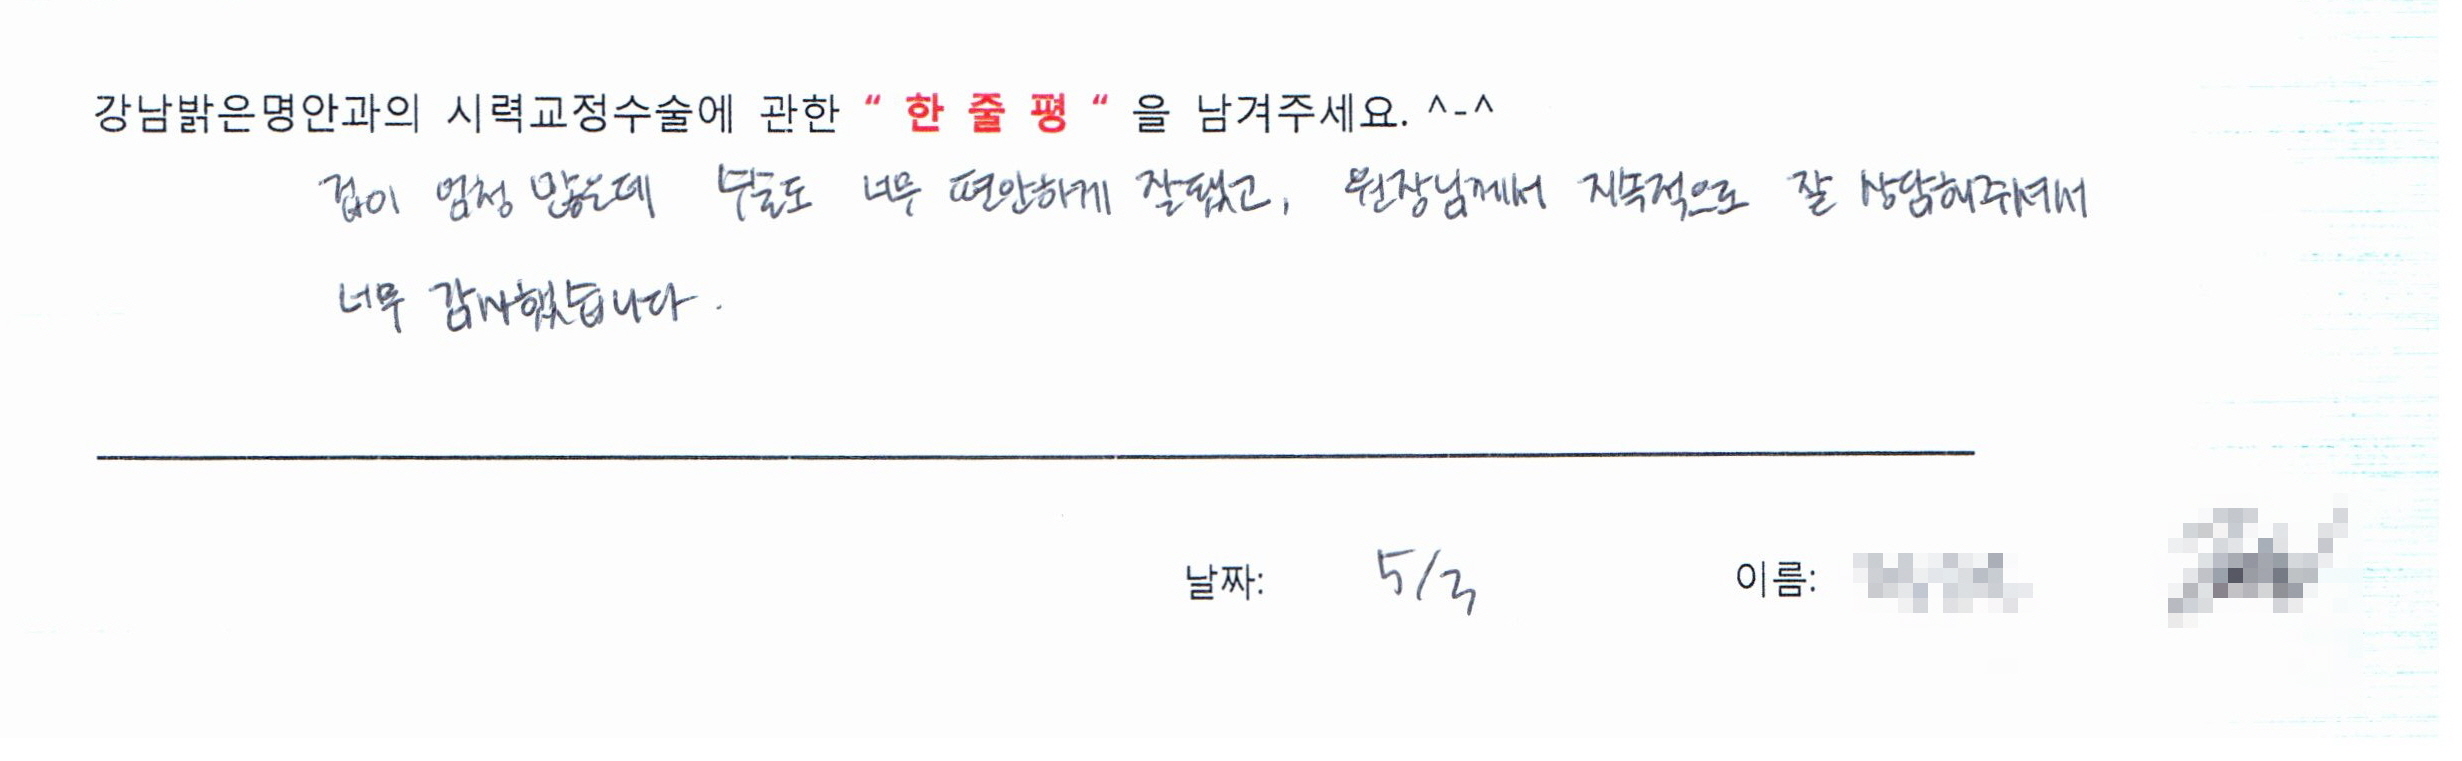 강남밝은명안과의 시력교정수술에 관한 “ 한 줄 평 “ 을 남겨주세요. ^-^
겁이 엄청 많은데 수술도 너무 편안하게 잘됐고, 원장님께서 지속적으로 잘 상담해주셔서
너무 감사했습니다.
날짜: 5/3 이름: